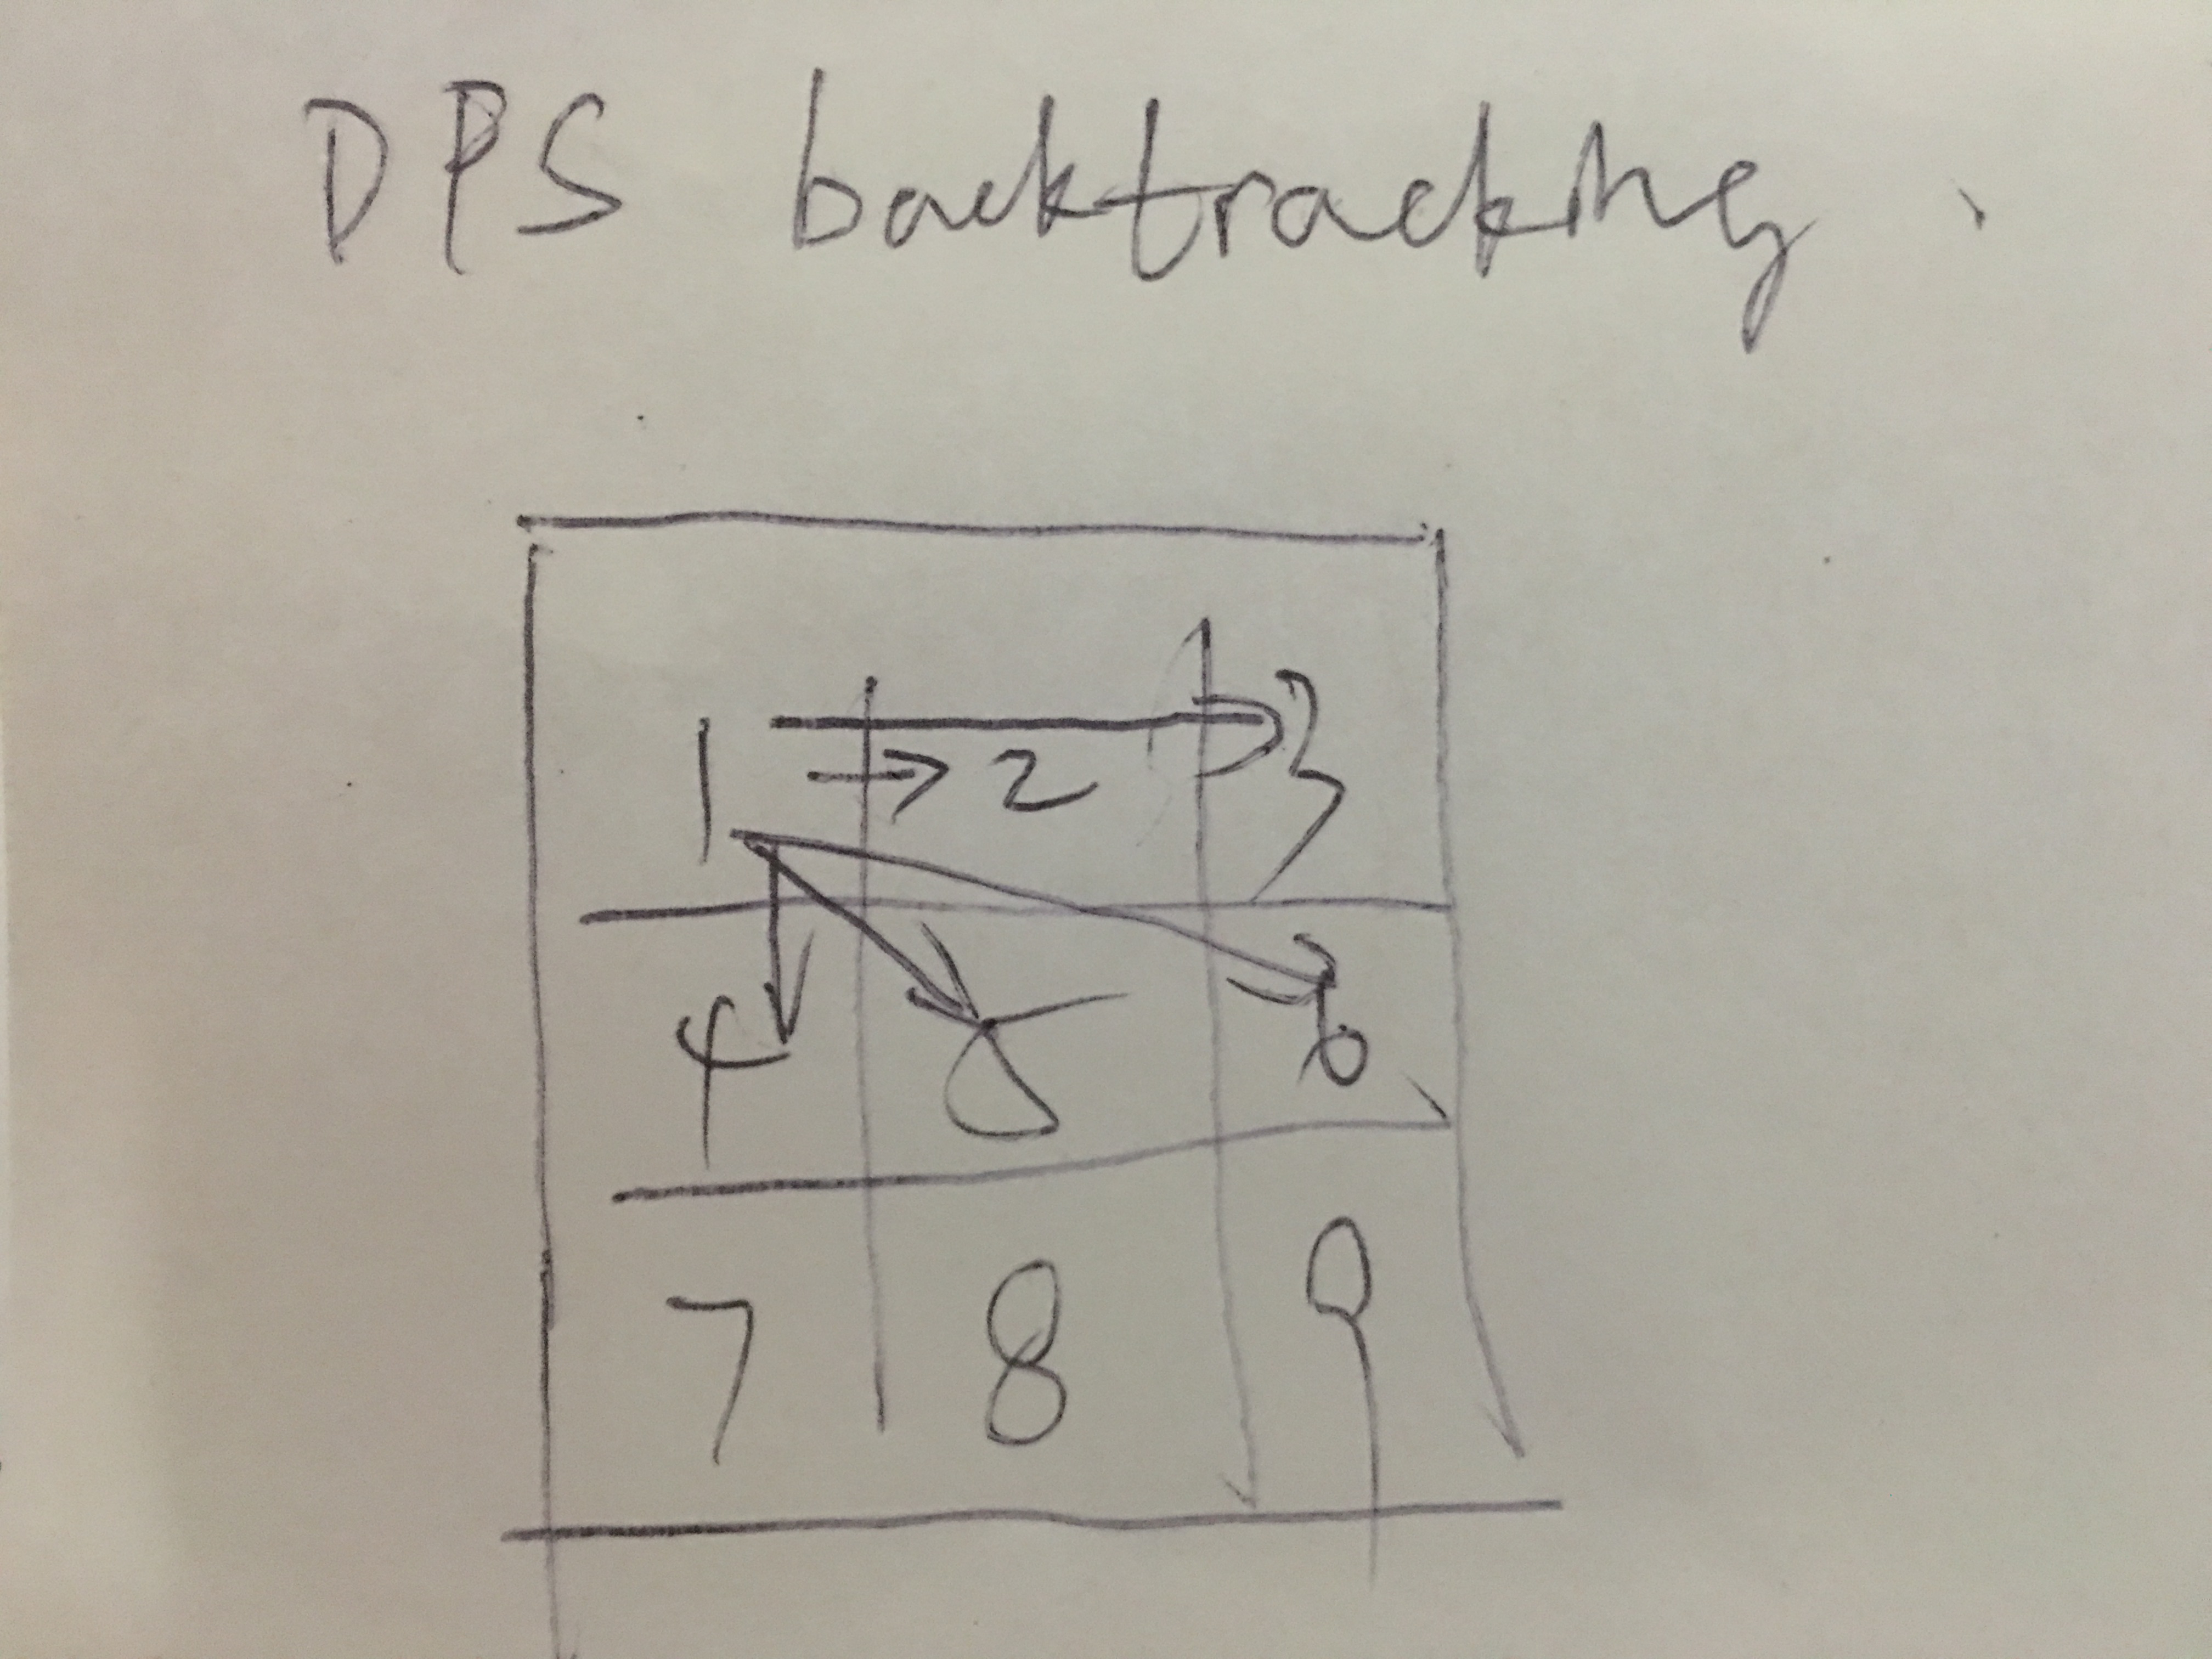 DPS backtracking.
1 → 2 3
4 5 6
7 8 9